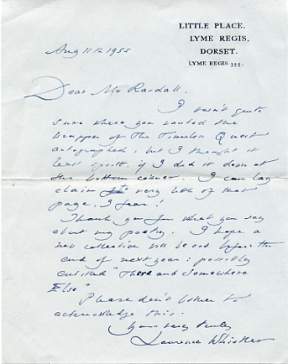 LITTLE PLACE,
LYME REGIS,
DORSET.
LYME REGIS
Aug 11th 1955
Dear Mr Randall,
I wasn't quite
sure where you wanted the
wrapper of The Timeless Quest
autographed, but I thought it
least spoilt if I did it down at
the bottom corner. I can lay
claim to very little of that
page, I fear!
Thank you for what you say
about my poetry. I hope a
new collection will be out before the
end of next year: possibly
entitled "There and Somewhere
Else"
Please don't bother to
acknowledge this.
Yours very truly
Laurence Whistler